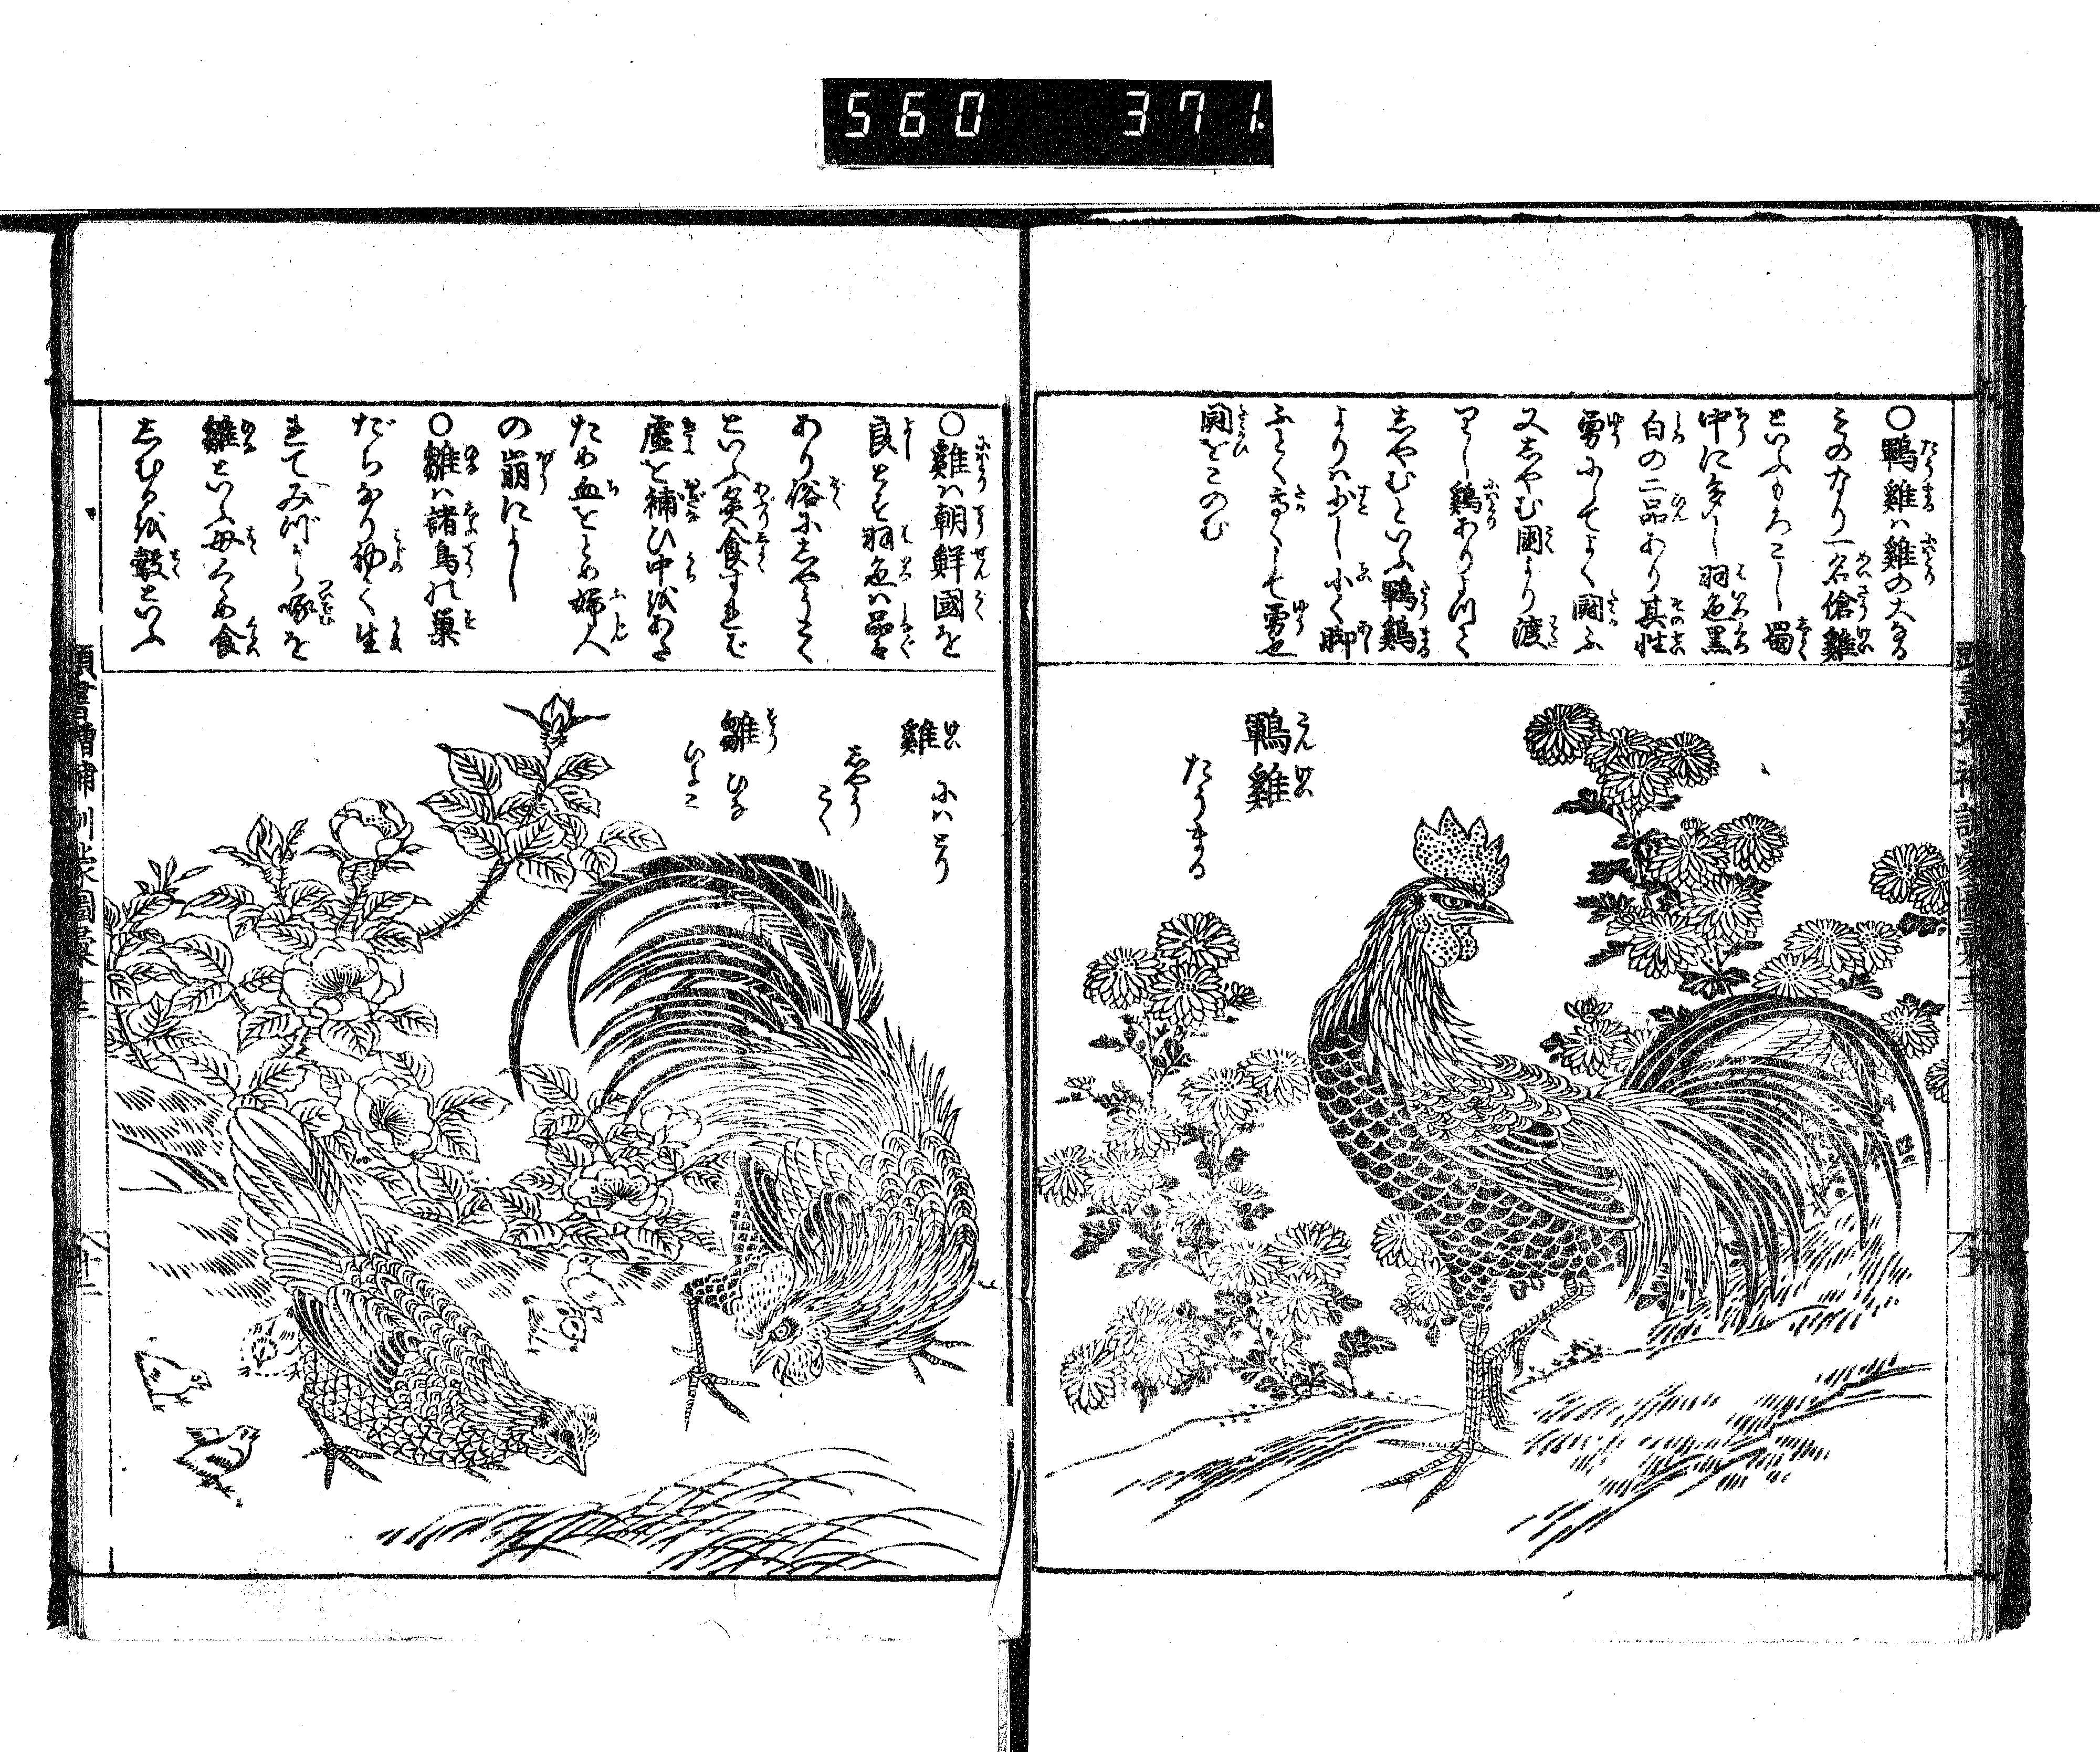 560 371
〇鶤雞ハ雞の大なる
ものなり一名傖雞
といふもろこし蜀
中に多し羽色黒
白の二品あり其性
勇にしてよく闘ふ
又志やむ国より渡
りし鶏あり
志やむといふ鶤鶏
よりハ少し小く脚
ふとく高くして勇也
闘をこのむ
鶤雞
こんけい
たうまる
〇雞ハ朝鮮國を
良とす羽色ハ品〻
あり俗に志やうこく
といふ炙食すれば
虚を補ひ中をあたゝ
ため血をとめ婦人
の崩によし
〇雛ハ諸鳥の巣
だちなり初て生
れてみづから啄を
雛といふ母くゝめ食
志むるを鷇といふ
雞
けい
にハとり
志やうこく
雛
すう
ひな
ひよこ
頭書増補訓蒙圖彙